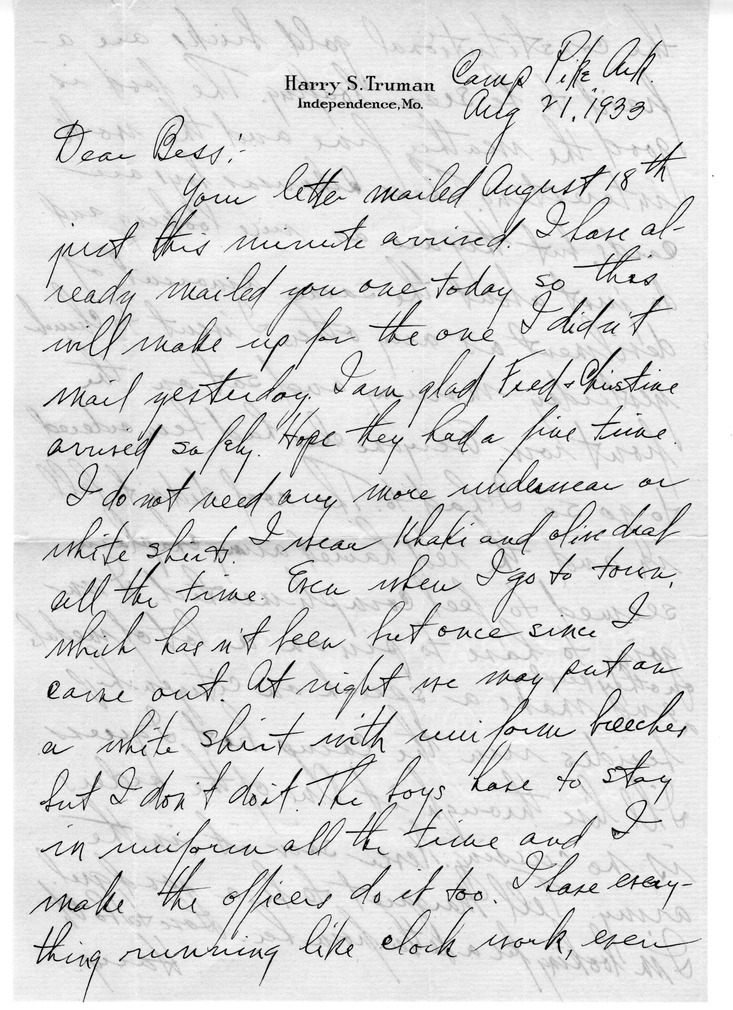 Harry S. Truman
Independence, Mo.
Camp Pike Ark.
Aug 21, 1933
Dear Bess:-
Your letter mailed August 18th
just this minute arrived. I have al-
ready mailed you one today so this
will make up for the one I didn't
mail yesterday. I am glad Fred & Christine
arrived safely. Hope they had a fine time.
I do not need any more underwear or
white shirts. I wear Khaki and olive drab
all the time. Even when I go to town,
which hasn't been but once since I
came out. At night we may put on
a white shirt with uniform breeches
but I don't do it. The boys have to stay
in uniform all the time and I
make the officers do it too. I have every-
thing running like clock work, even